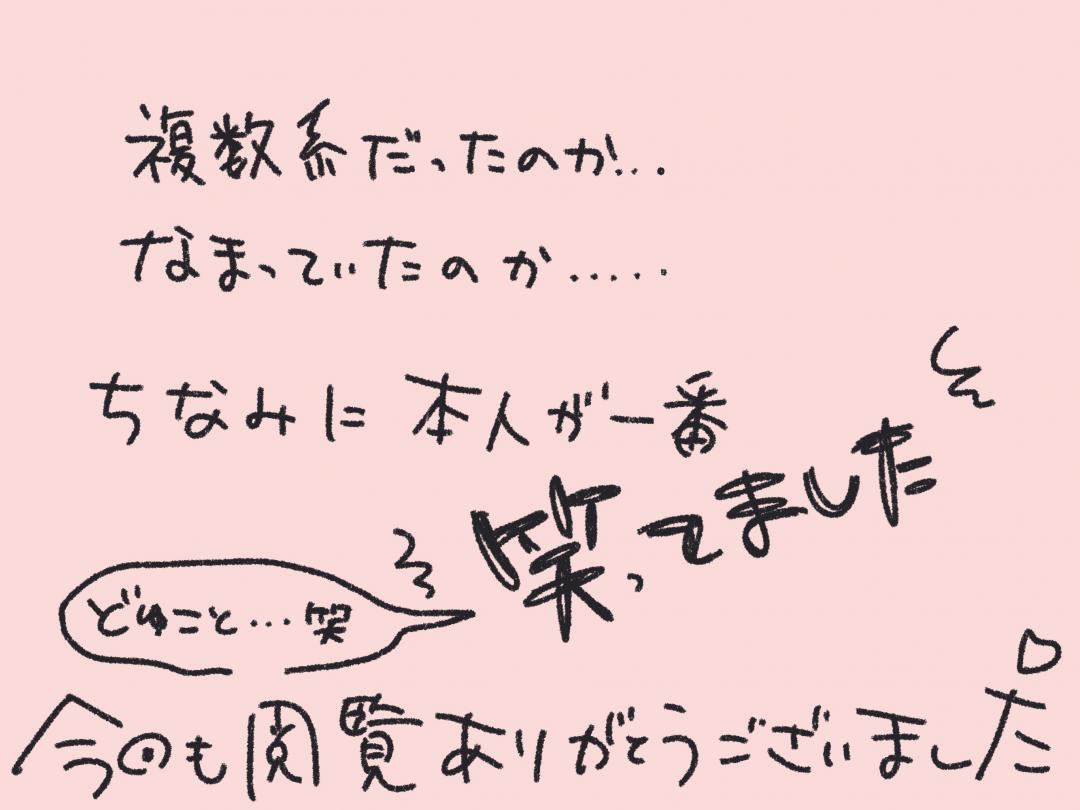 複数系だったのか...
なまっていたのか.....
ちなみに本人が一番
笑ってました
どゆこと...笑
今回も閲覧ありがとうございました